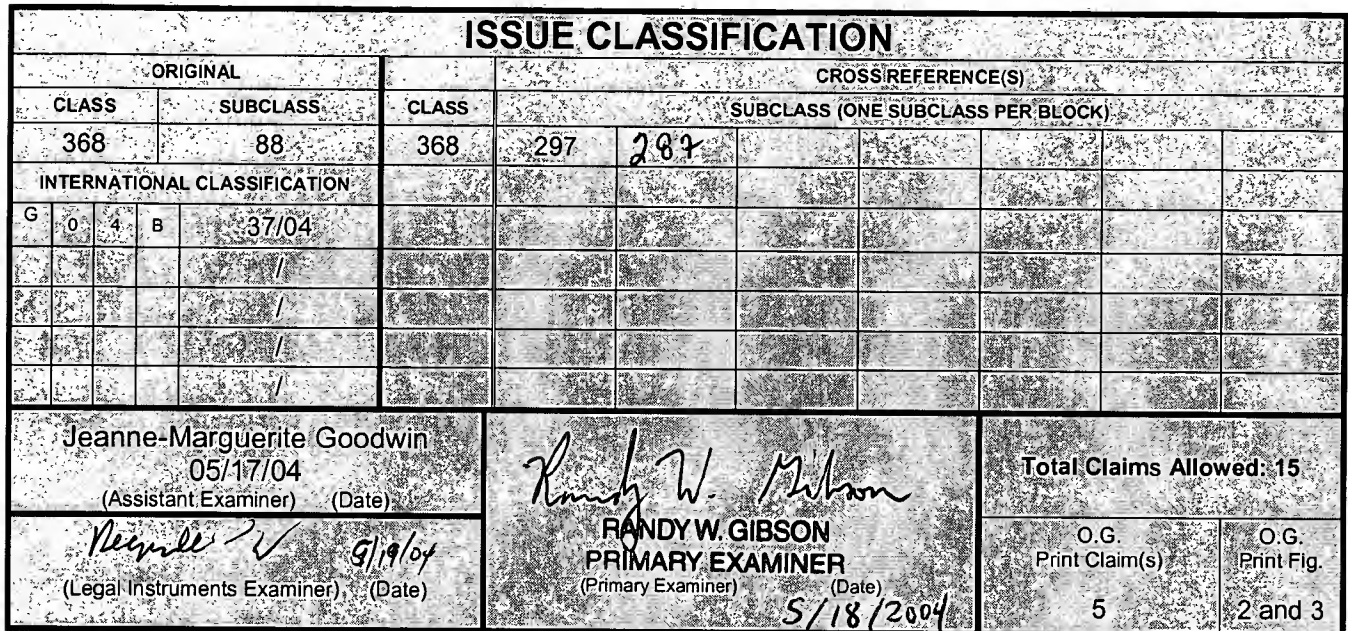 ISSUE CLASSIFICATION
ORIGINAL CROSS REFERENCE(S)
CLASS SUBCLASS CLASS SUBCLASS (ONE SUBCLASS PER BLOCK)
368 88 368 297 287
INTERNATIONAL CLASSIFICATION
G 0 4 B 37/04
/
/
/
/
Jeanne-Marguerite Goodwin
05/17/04
(Assistant Examiner) (Date)
9/19/04
(Legal Instruments Examiner) (Date)
Randy W. Gibson
RANDY W. GIBSON
PRIMARY EXAMINER
(Primary Examiner) (Date)
5/18/2004
Total Claims Allowed: 15
O.G.
Print Claim(s)
5
O.G.
Print Fig.
2 and 3